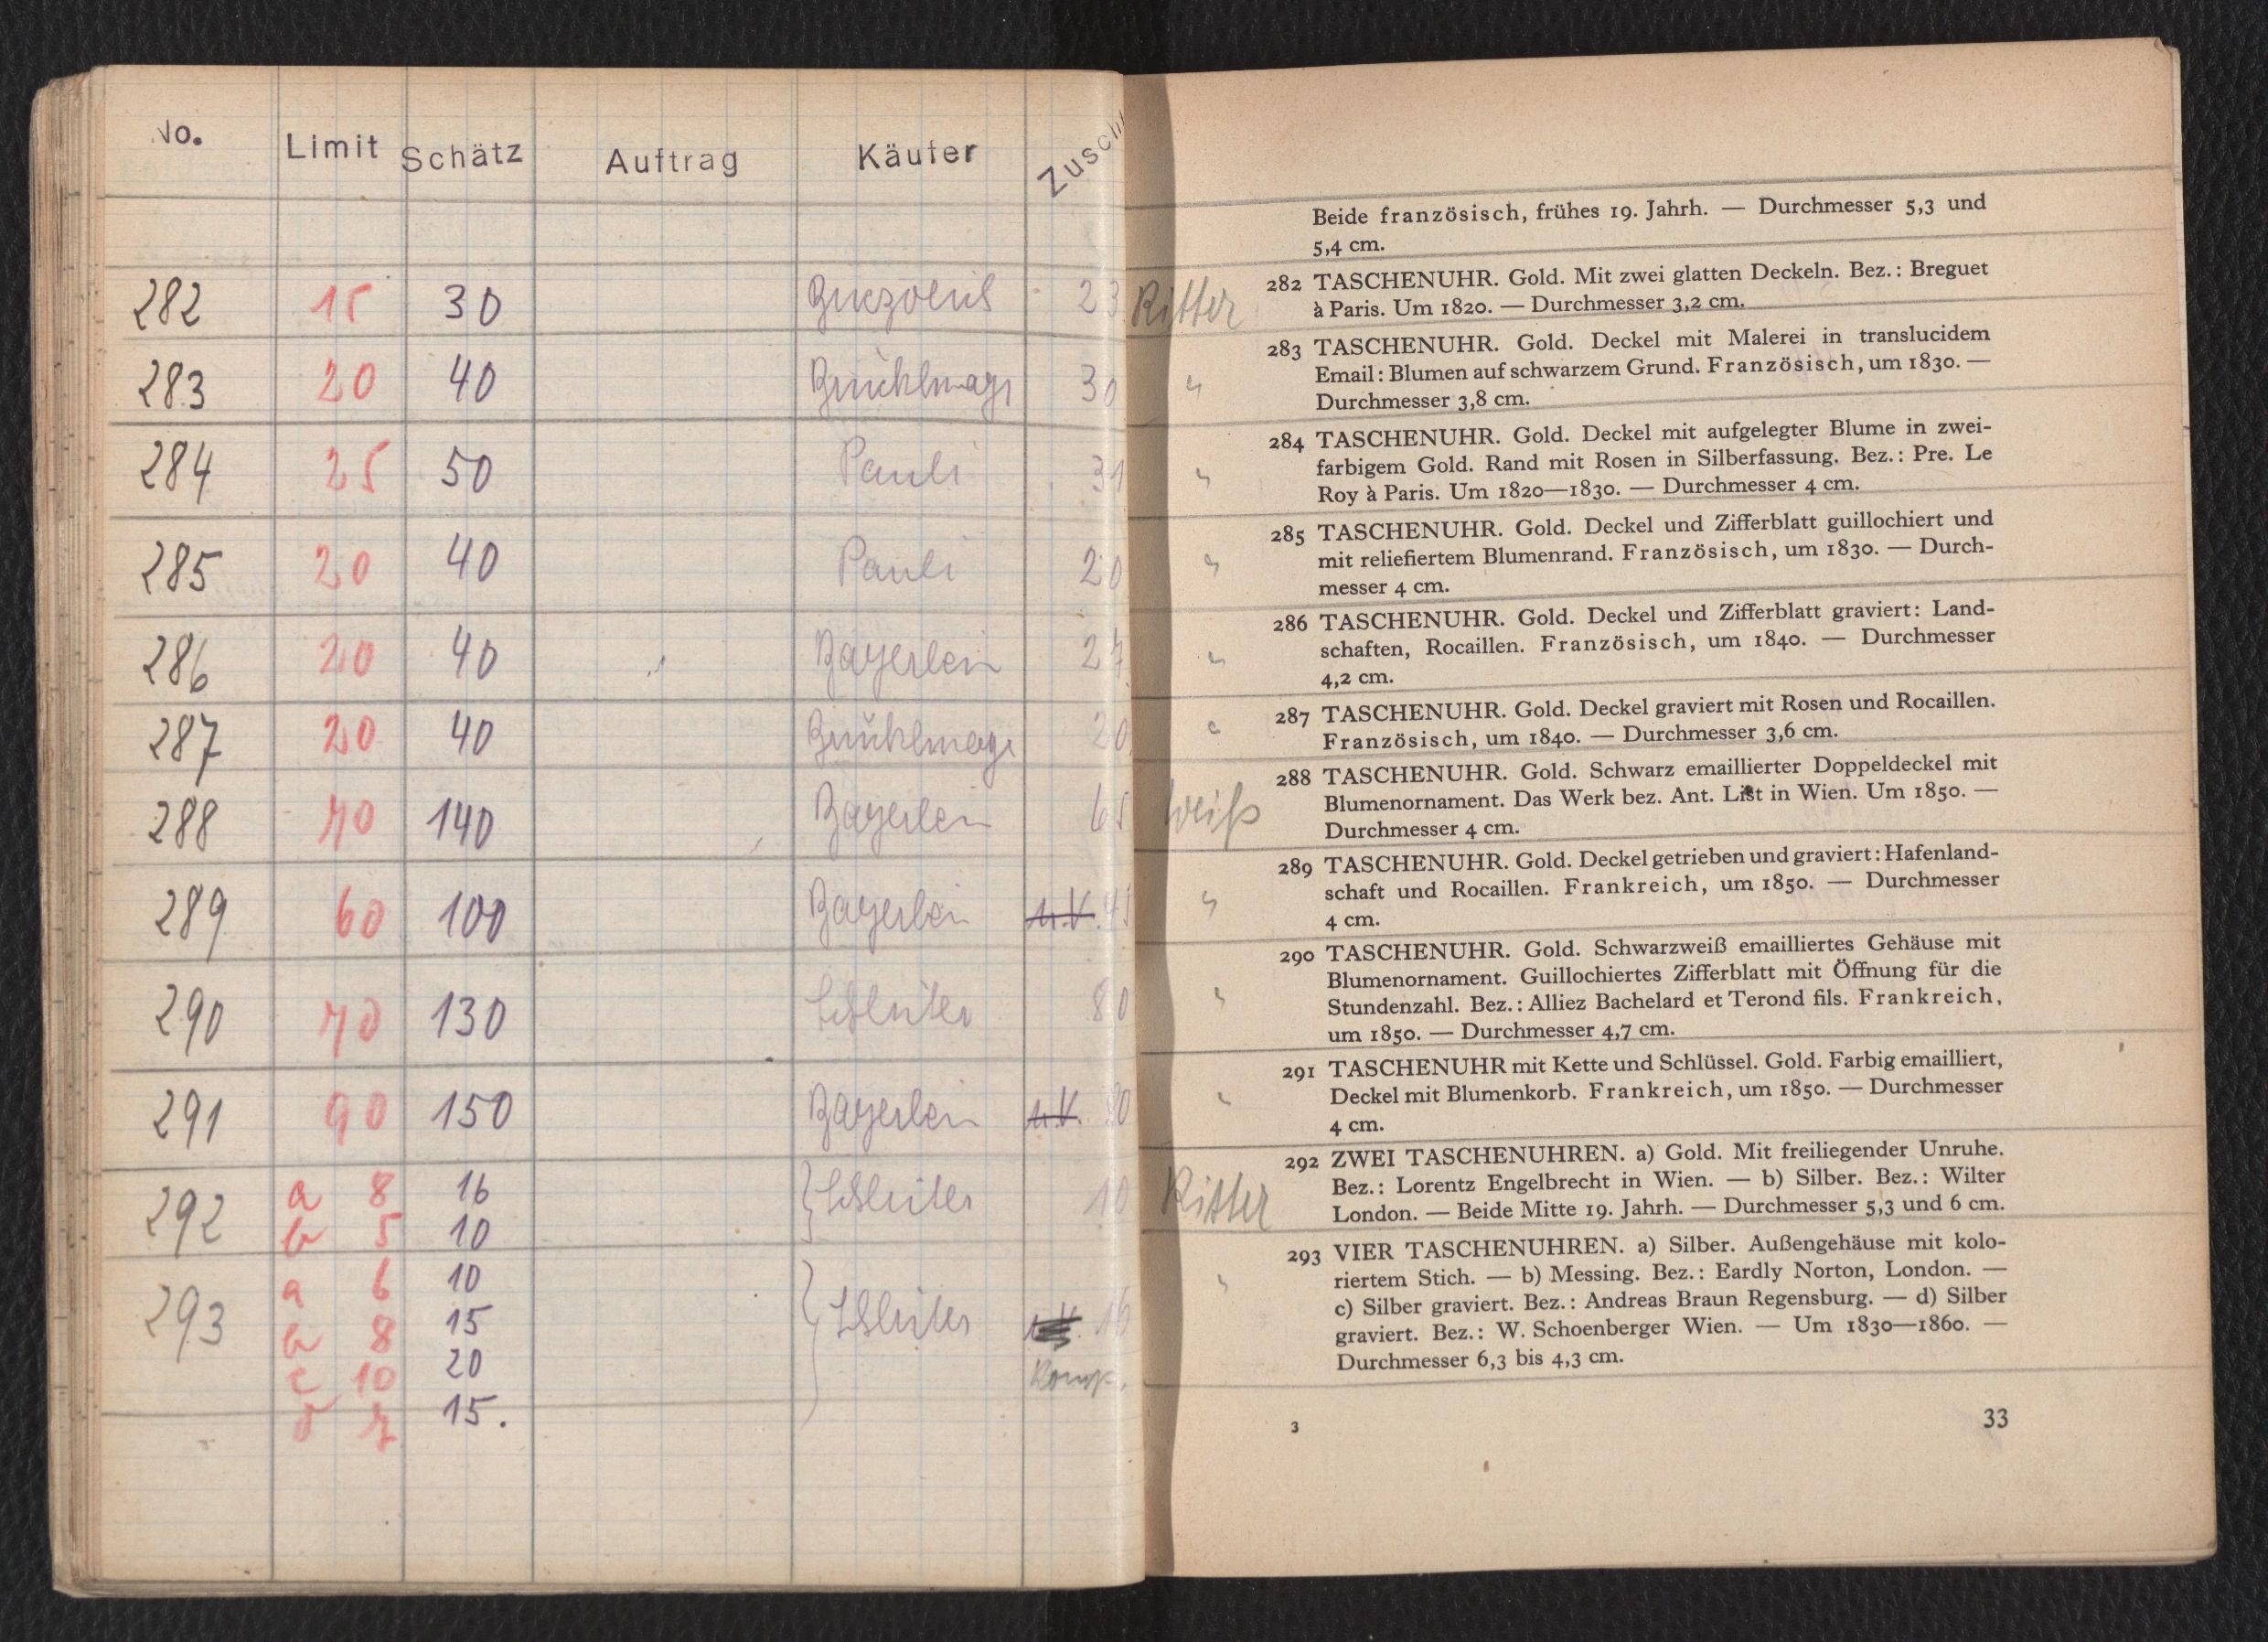 No. Limit Schätz Auftrag Käufer Zuschl
282 15 30 23 Ritter
283 20 40 30 "
284 25 50 Pauli 31 "
285 20 40 Pauli 20 "
286 20 40 Bayerlein 27 "
287 20 40 20 "
288 70 140 Bayerlein 65 Weiß
289 60 100 Bayerlein u.V. 45 "
290 70 130 80 "
291 90 150 Bayerlein u.V. 80 "
292 a 8 16 10 Ritter
b 5 10
293 a 6 10 16 "
b 8 15
c 10 20 Komp.
d 7 15.
Beide französisch, frühes 19. Jahrh. — Durchmesser 5,3 und
5,4 cm.
282 TASCHENUHR. Gold. Mit zwei glatten Deckeln. Bez.: Breguet
à Paris. Um 1820. — Durchmesser 3,2 cm.
283 TASCHENUHR. Gold. Deckel mit Malerei in translucidem
Email: Blumen auf schwarzem Grund. Französisch, um 1830. —
Durchmesser 3,8 cm.
284 TASCHENUHR. Gold. Deckel mit aufgelegter Blume in zwei-
farbigem Gold. Rand mit Rosen in Silberfassung. Bez.: Pre. Le
Roy à Paris. Um 1820—1830. — Durchmesser 4 cm.
285 TASCHENUHR. Gold. Deckel und Zifferblatt guillochiert und
mit reliefiertem Blumenrand. Französisch, um 1830. — Durch-
messer 4 cm.
286 TASCHENUHR. Gold. Deckel und Zifferblatt graviert: Land-
schaften, Rocaillen. Französisch, um 1840. — Durchmesser
4,2 cm.
287 TASCHENUHR. Gold. Deckel graviert mit Rosen und Rocaillen.
Französisch, um 1840. — Durchmesser 3,6 cm.
288 TASCHENUHR. Gold. Schwarz emaillierter Doppeldeckel mit
Blumenornament. Das Werk bez. Ant. List in Wien. Um 1850. —
Durchmesser 4 cm.
289 TASCHENUHR. Gold. Deckel getrieben und graviert: Hafenland-
schaft und Rocaillen. Frankreich, um 1850. — Durchmesser
4 cm.
290 TASCHENUHR. Gold. Schwarzweiß emailliertes Gehäuse mit
Blumenornament. Guillochiertes Zifferblatt mit Öffnung für die
Stundenzahl. Bez.: Alliez Bachelard et Terond fils. Frankreich,
um 1850. — Durchmesser 4,7 cm.
291 TASCHENUHR mit Kette und Schlüssel. Gold. Farbig emailliert,
Deckel mit Blumenkorb. Frankreich, um 1850. — Durchmesser
4 cm.
292 ZWEI TASCHENUHREN. a) Gold. Mit freiliegender Unruhe.
Bez.: Lorentz Engelbrecht in Wien. — b) Silber. Bez.: Wilter
London. — Beide Mitte 19. Jahrh. — Durchmesser 5,3 und 6 cm.
293 VIER TASCHENUHREN. a) Silber. Außengehäuse mit kolo-
riertem Stich. — b) Messing. Bez.: Eardly Norton, London. —
c) Silber graviert. Bez.: Andreas Braun Regensburg. — d) Silber
graviert. Bez.: W. Schoenberger Wien. — Um 1830—1860. —
Durchmesser 6,3 bis 4,3 cm.
3 33